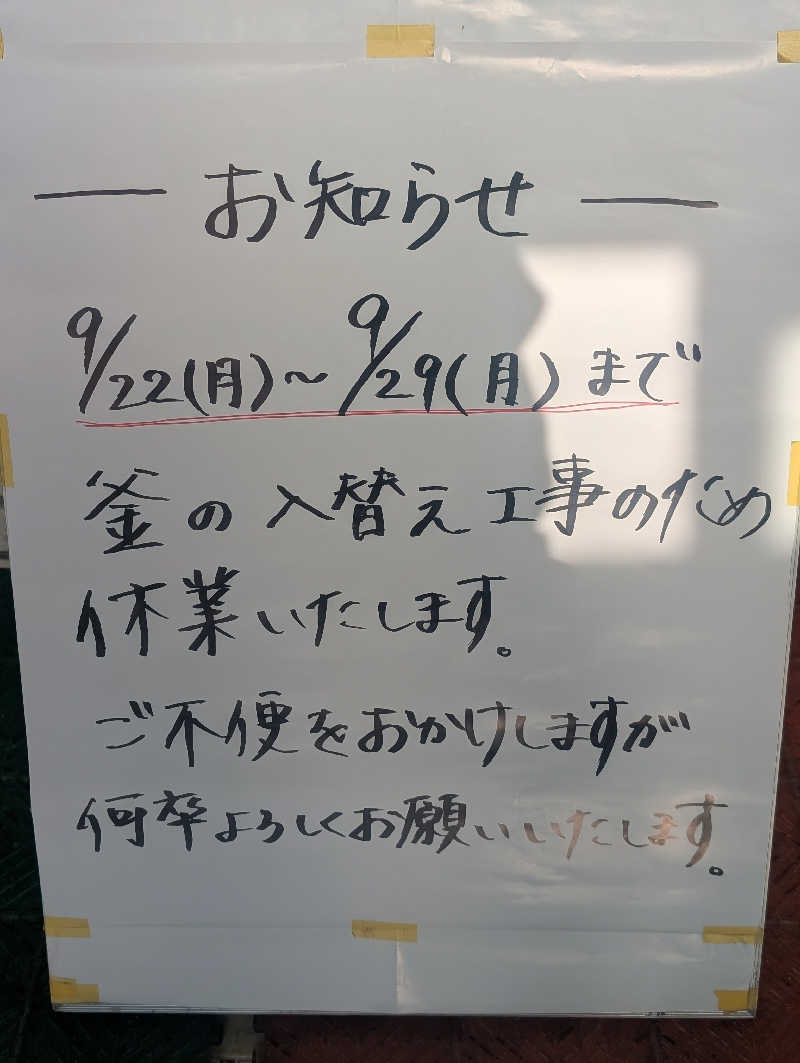 — お知らせ —
9/22(月)～9/29(月)まで
釜の入替え工事のため
休業いたします。
ご不便をおかけしますが
何卒よろしくお願いいたします。